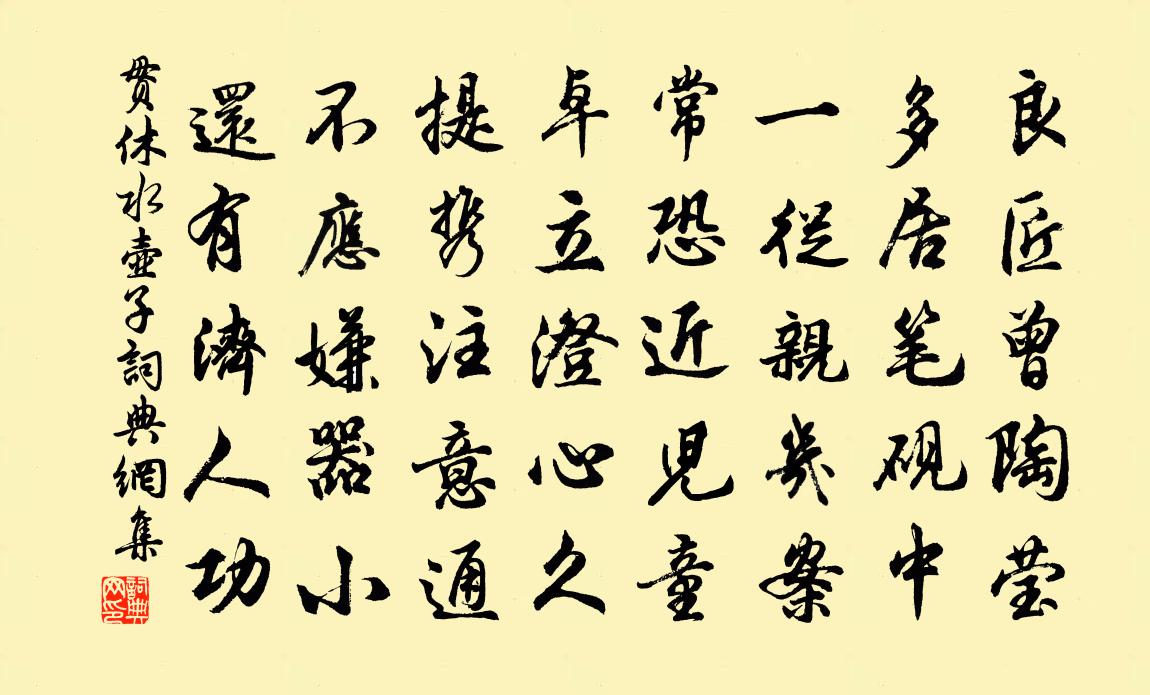 良匠曾陶莹
多居笔砚中
一從親幾案
常恐近児童
卓立澄心久
提携注意通
不應嫌器小
還有濟人功
貫休水壺子詞典網集
詞典網印